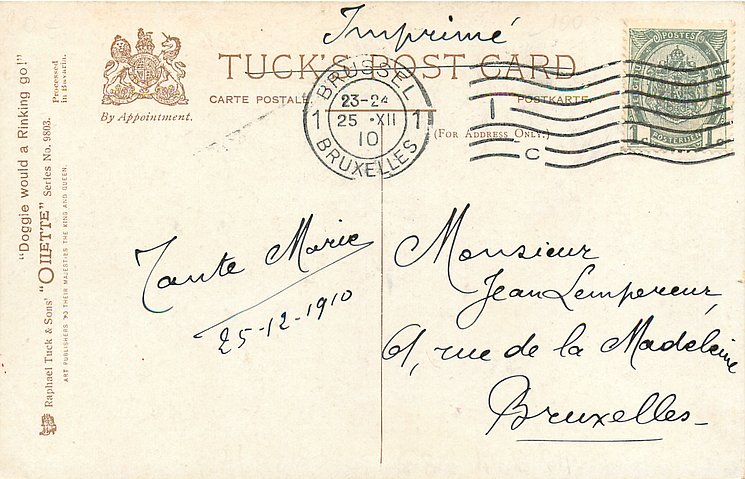 Imprimé
TUCK'S POST CARD
CARTE POSTALE
POSTKARTE
(FOR ADDRESS ONLY.)
By Appointment.
BRUSSEL
23-24
1 25 ·XII 1
10
BRUXELLES
POSTES
1c 1c
"Doggie would a Rinking go!"
Processed
in Bavaria.
Raphael Tuck & Sons' "OILETTE" Series No. 9803.
ART PUBLISHERS TO THEIR MAJESTIES THE KING AND QUEEN.
Tante Marie
25-12-1910
Monsieur
Jean Lempereur,
61, rue de la Madeleine
Bruxelles